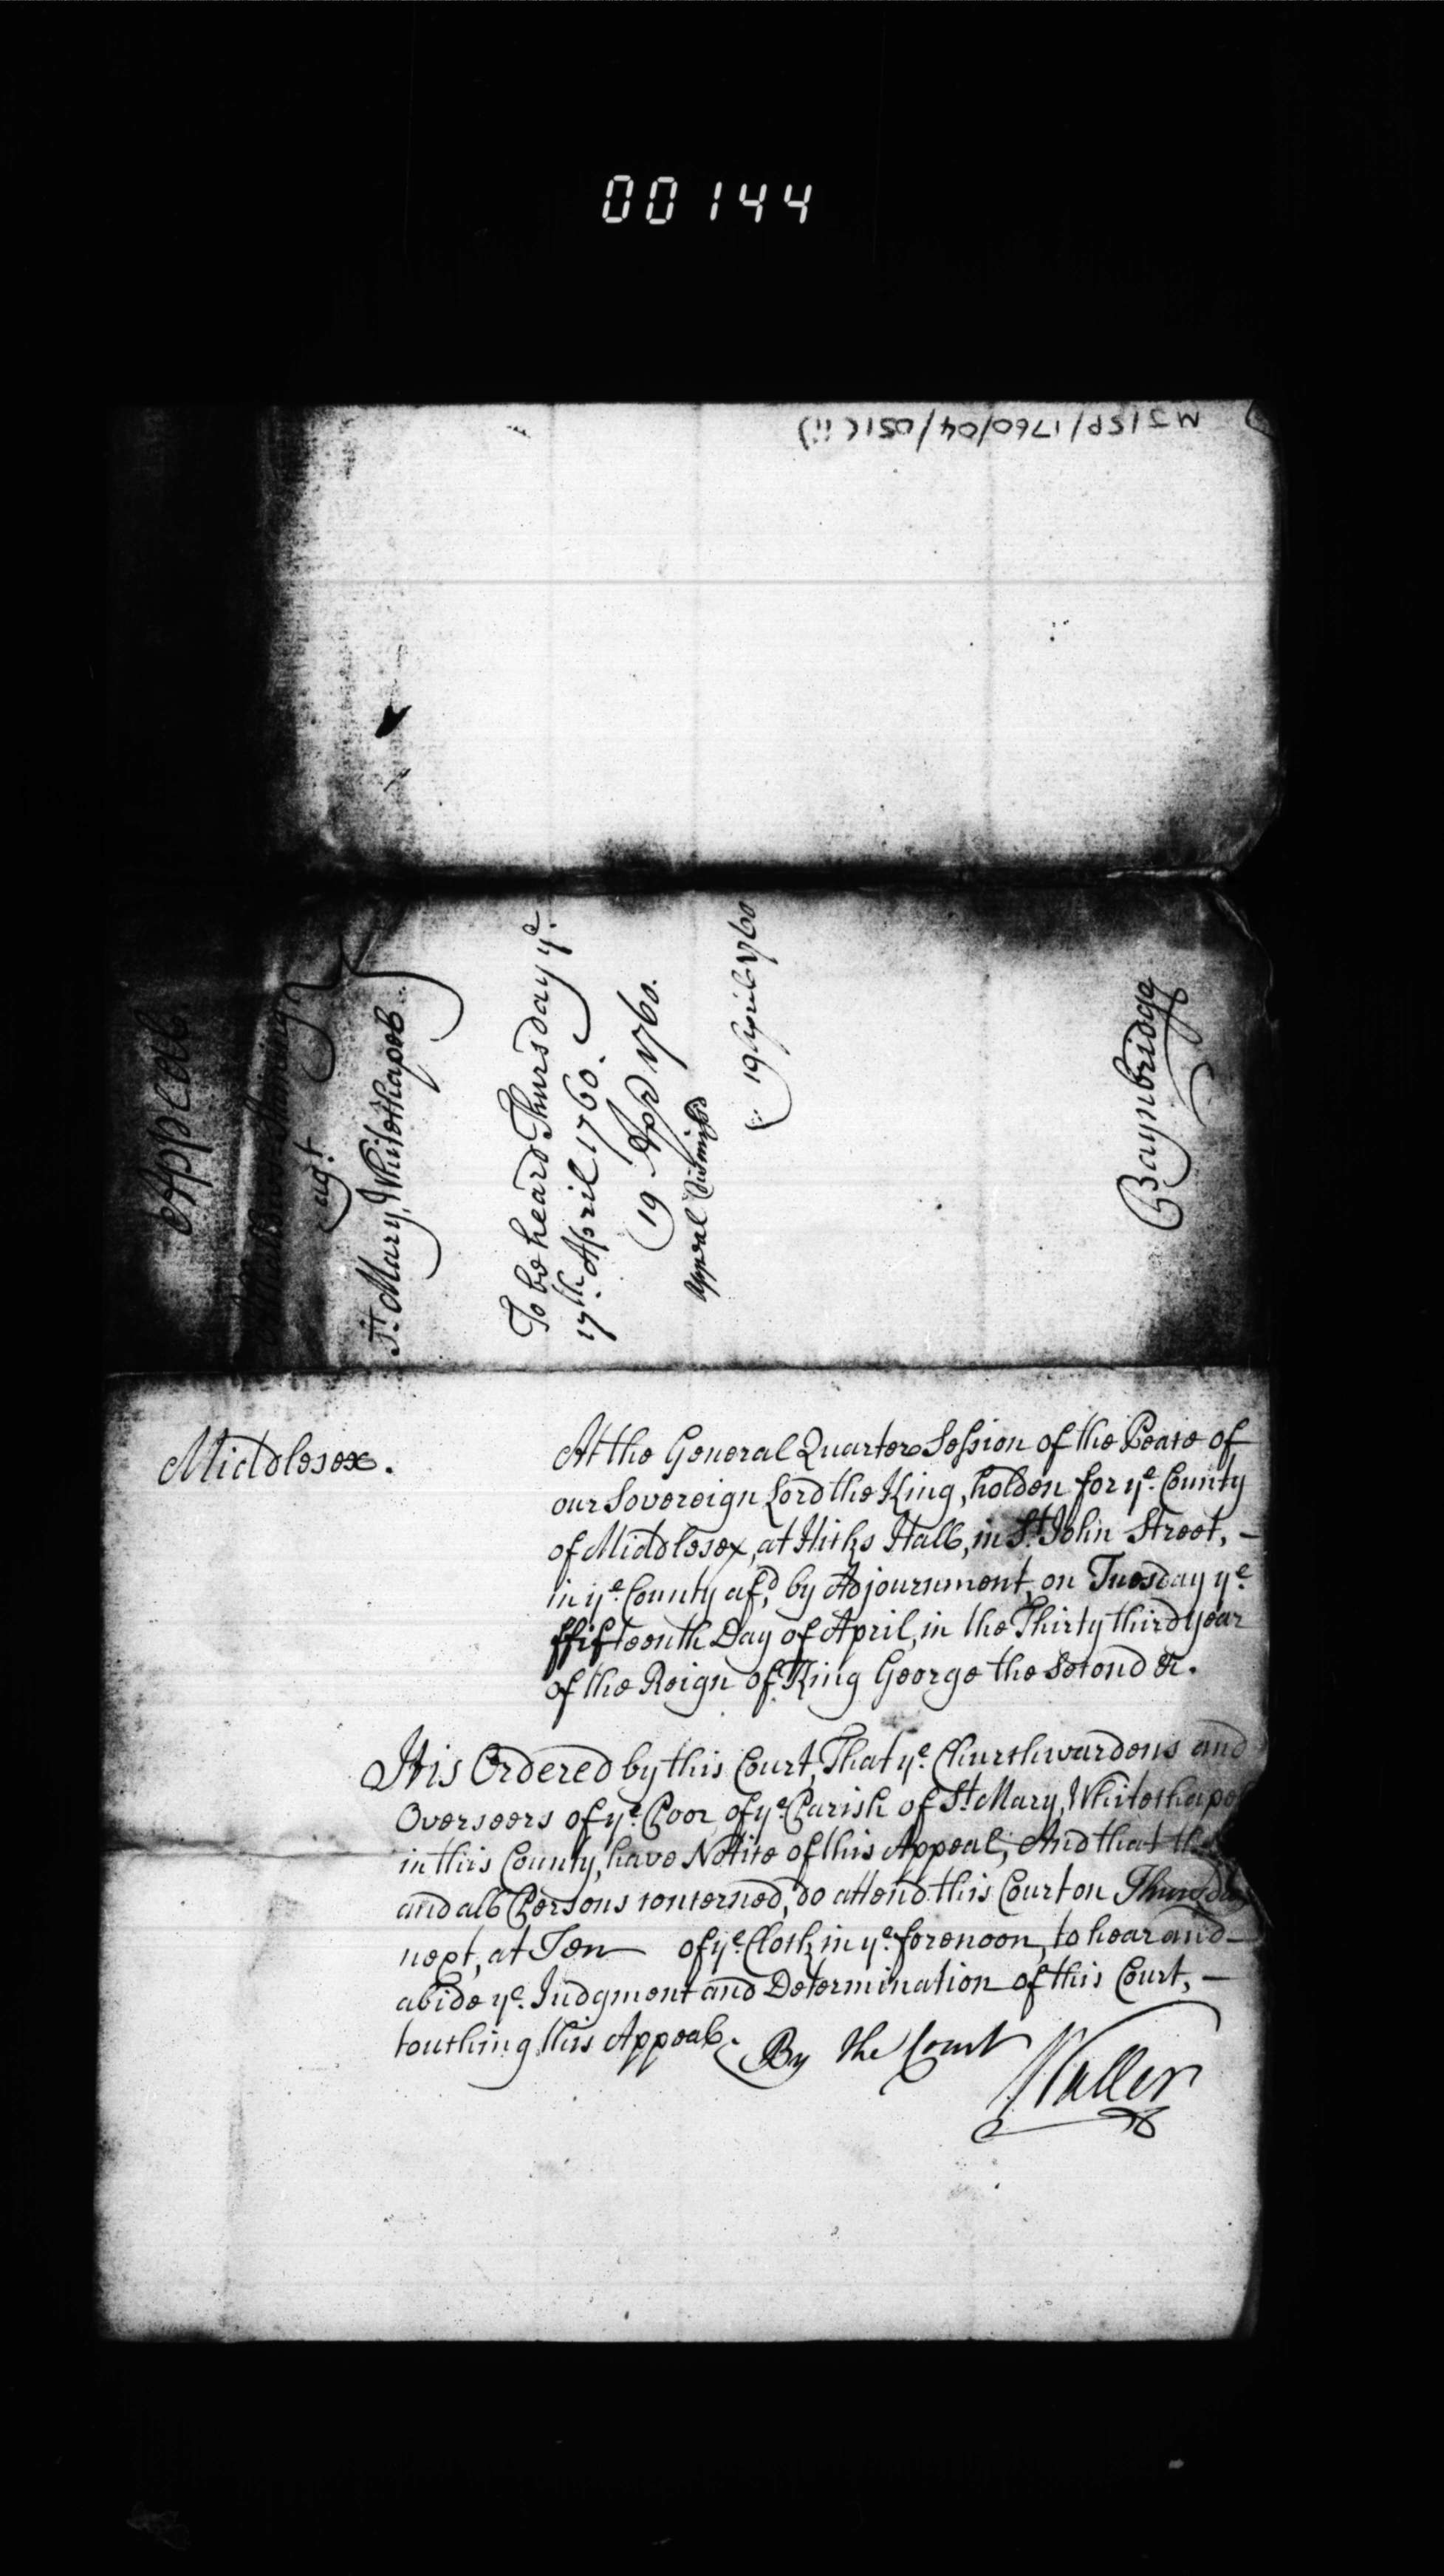 00144
MJ/SP/1760/04/051(ii)
Appeal.
agt.
St. Mary, Whitechapel.
To be heard Thursday ye.
17th. April 1760.
19 Apr 1760.
Appeal dismissd
19 April 1760
Baynbridge
Middlesex.
At the General Quarter Session of the Peace of
our Sovereign Lord the King, holden for ye. County
of Middlesex, at Hicks Hall, in St. John Street, -
in ye. County afd. by Adjournment, on Tuesday ye.
ffifteenth Day of April, in the Thirty third year
of the Reign of King George the Second &c.
It is Ordered by this Court, That ye. Churchwardens and
Overseers of ye. Poor of ye. Parish of St. Mary, Whitechapel
in this County, have Notice of this Appeal; And that
and all Persons concerned, do attend this Court on Thursday
next, at Ten of ye. Clock in ye. forenoon, to hear and
abide ye. Judgment and Determination of this Court, -
touching this Appeal. By the Court
Waller